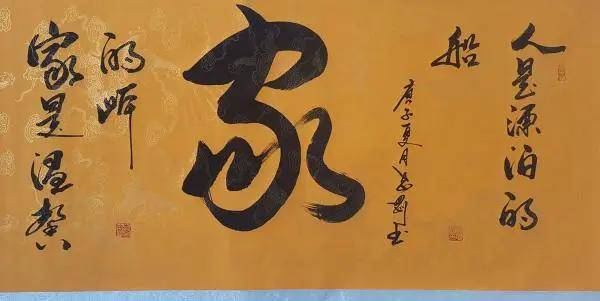 人是漂泊的
船
庚子夏月书
家
家是温馨
的岸